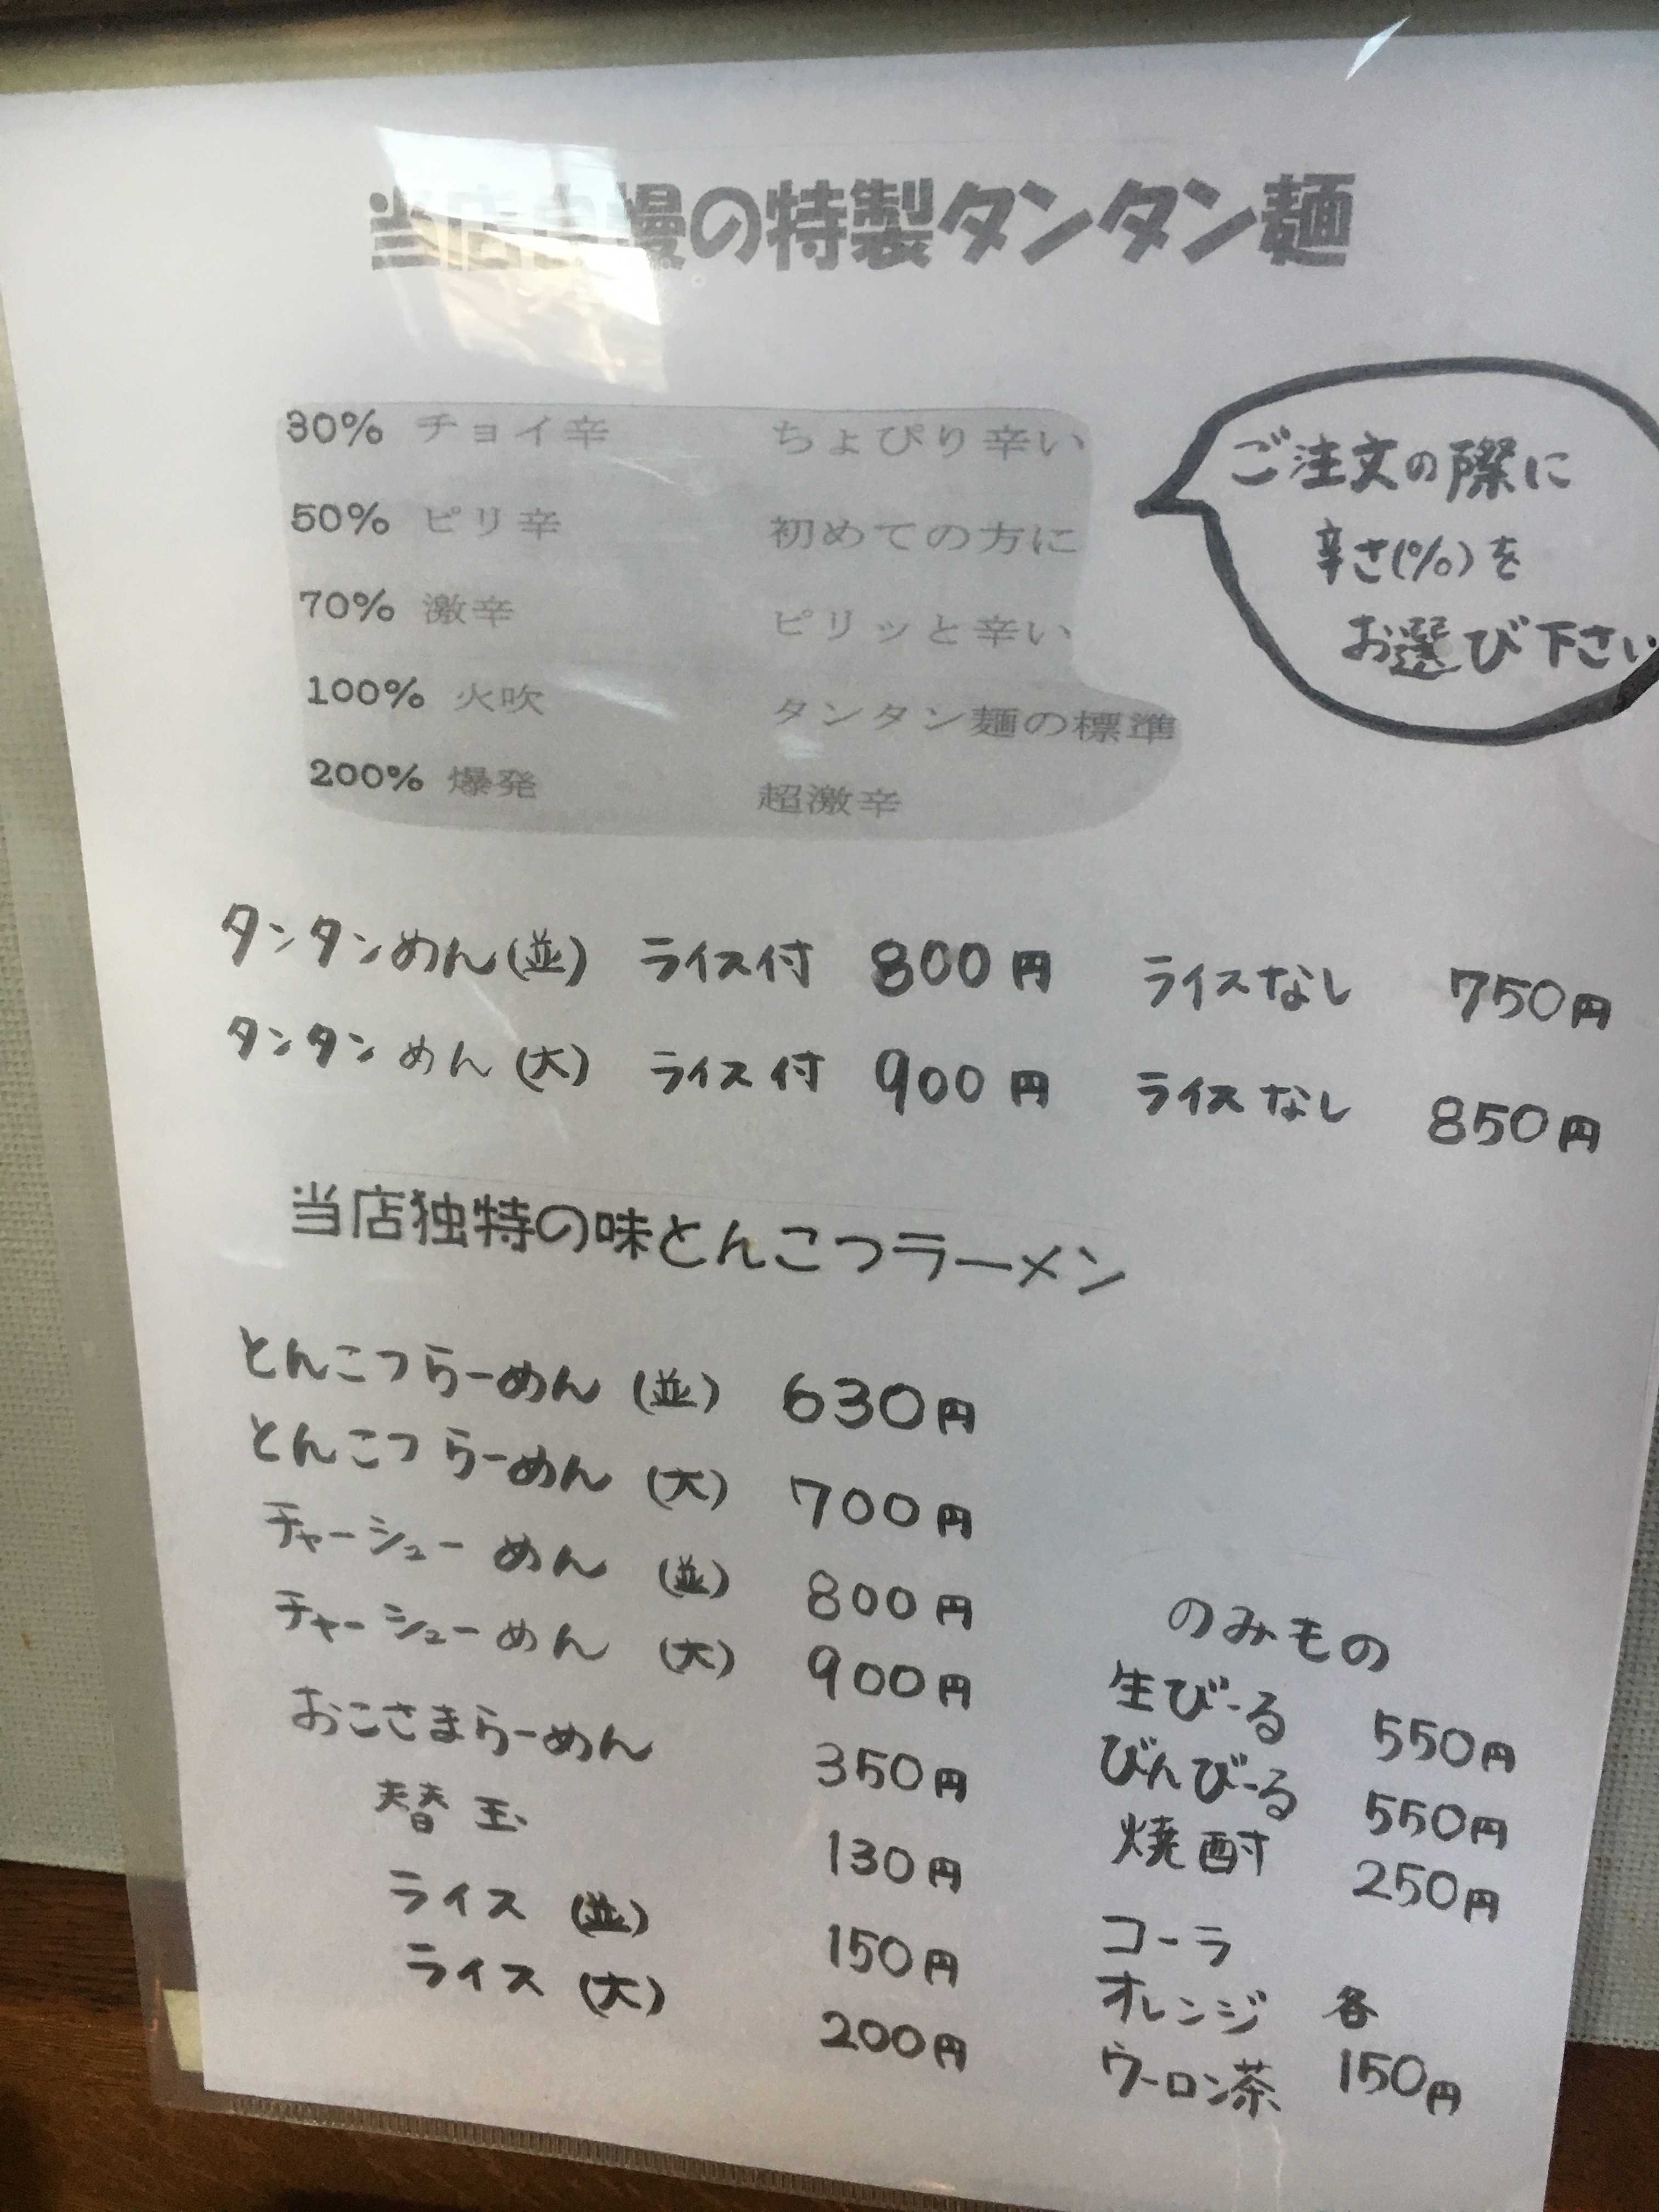 当店自慢の特製タンタン麺
30% チョイ辛 ちょぴり辛い
50% ピリ辛 初めての方に
70% 激辛 ピリッと辛い
100% 火吹 タンタン麺の標準
200% 爆発 超激辛
ご注文の際に
辛さ(%)を
お選び下さい
タンタンめん(並) ライス付 800円 ライスなし 750円
タンタンめん(大) ライス付 900円 ライスなし 850円
当店独特の味とんこつラーメン
とんこつらーめん(並) 630円
とんこつらーめん(大) 700円
チャーシューめん(並) 800円
チャーシューめん(大) 900円
おこさまらーめん 350円
替玉 130円
ライス(並) 150円
ライス(大) 200円
のみもの
生びーる 550円
びんびーる 550円
焼酎 250円
コーラ
オレンジ 各
ウーロン茶 150円